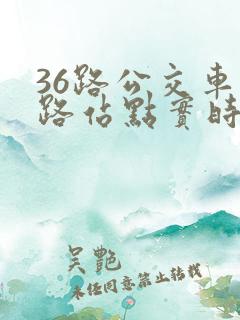 36路公交車
路佔點實時
吴艷
未经同意禁止转载